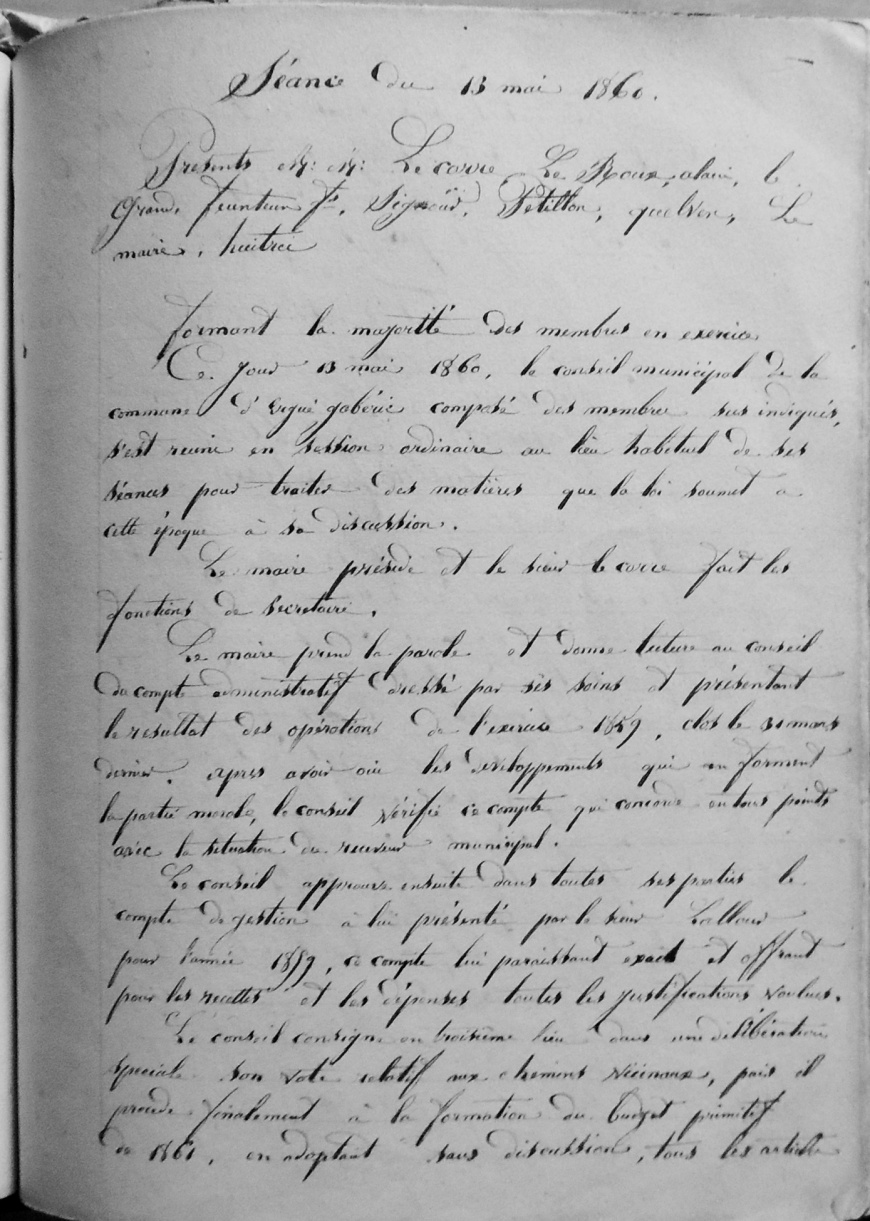 Séance du 13 mai 1860.
Presents M. M. Le corre Le Roux, alain, le
Grand, feunteun fs, Signour, Petillon, quelven, Le
maire, huitric
formant la majorité des membres en exercice
Ce jour 13 mai 1860, le conseil municipal de la
commune d'Ergué gabéric composé des membres sus indiqués,
s'est reuni en session ordinaire au lieu habituel de ses
séances pour traiter des matières que la loi soumet a
cette époque à sa discussion.
Le maire préside et le sieur le corre fait les
fonctions de secretaire.
Le maire prend la parole et donne lecture au conseil
du compte administratif dressé par ses soins et présentant
le resultat des opérations de l'exercice 1859, clos le 31 mars
dernier. apres avoir oui les developpements qui en forment
la partie morale, le conseil vérifie ce compte qui concorde en tous points
avec la situation du receveur municipal.
Le conseil approuve ensuite dans toutes ses parties le
compte de gestion à lui présenté par le sieur Lallour
pour l'année 1859, ce compte lui paraissant exact et offrant
pour les recettes et les dépenses toutes les justifications voulues.
Le conseil consigne en troisième lieu dans une délibération
speciale son vote relatif aux chemins vicinaux, puis il
procede finalement à la formation du budget primitif
de 1861, en adoptant sans discussion, tous les articles